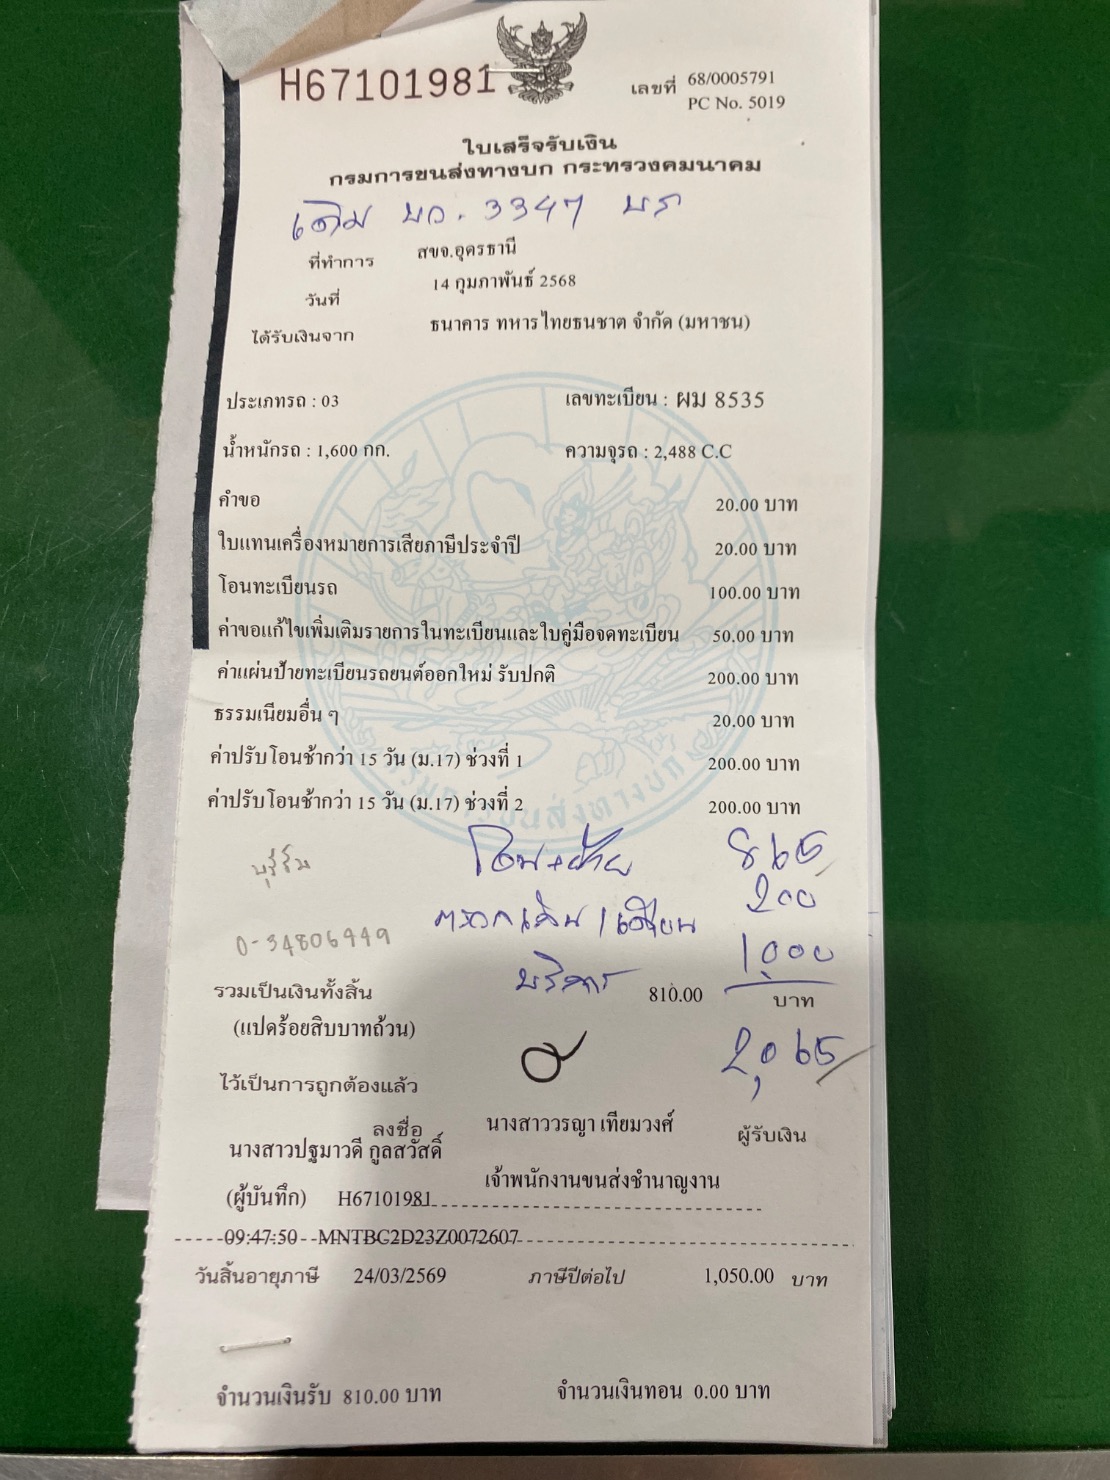 H67101981
เลขที่ 68/0005791
PC No. 5019
ใบเสร็จรับเงิน
กรมการขนส่งทางบก กระทรวงคมนาคม
เดิม บว. 3347 บร
ที่ทำการ สขจ.อุดรธานี
วันที่ 14 กุมภาพันธ์ 2568
ได้รับเงินจาก ธนาคาร ทหารไทยธนชาต จำกัด (มหาชน)
ประเภทรถ : 03 เลขทะเบียน : ผม 8535
น้ำหนักรถ : 1,600 กก. ความจุรถ : 2,488 C.C
คำขอ 20.00 บาท
ใบแทนเครื่องหมายการเสียภาษีประจำปี 20.00 บาท
โอนทะเบียนรถ 100.00 บาท
ค่าขอแก้ไขเพิ่มเติมรายการในทะเบียนและใบคู่มือจดทะเบียน 50.00 บาท
ค่าแผ่นป้ายทะเบียนรถยนต์ออกใหม่ รับปกติ 200.00 บาท
ธรรมเนียมอื่น ๆ 20.00 บาท
ค่าปรับโอนช้ากว่า 15 วัน (ม.17) ช่วงที่ 1 200.00 บาท
ค่าปรับโอนช้ากว่า 15 วัน (ม.17) ช่วงที่ 2 200.00 บาท
โอน+ย้าย 865
200
0-34806449
บริการ 1,000
รวมเป็นเงินทั้งสิ้น 810.00 บาท
(แปดร้อยสิบบาทถ้วน)
2,065
ไว้เป็นการถูกต้องแล้ว
ลงชื่อ นางสาววรญา เทียมวงศ์ ผู้รับเงิน
นางสาวปฐมาวดี กูลสวัสดิ์
เจ้าพนักงานขนส่งชำนาญงาน
(ผู้บันทึก) H67101981
09:47:50 MNTBC2D23Z0072607
วันสิ้นอายุภาษี 24/03/2569 ภาษีปีต่อไป 1,050.00 บาท
จำนวนเงินรับ 810.00 บาท จำนวนเงินทอน 0.00 บาท